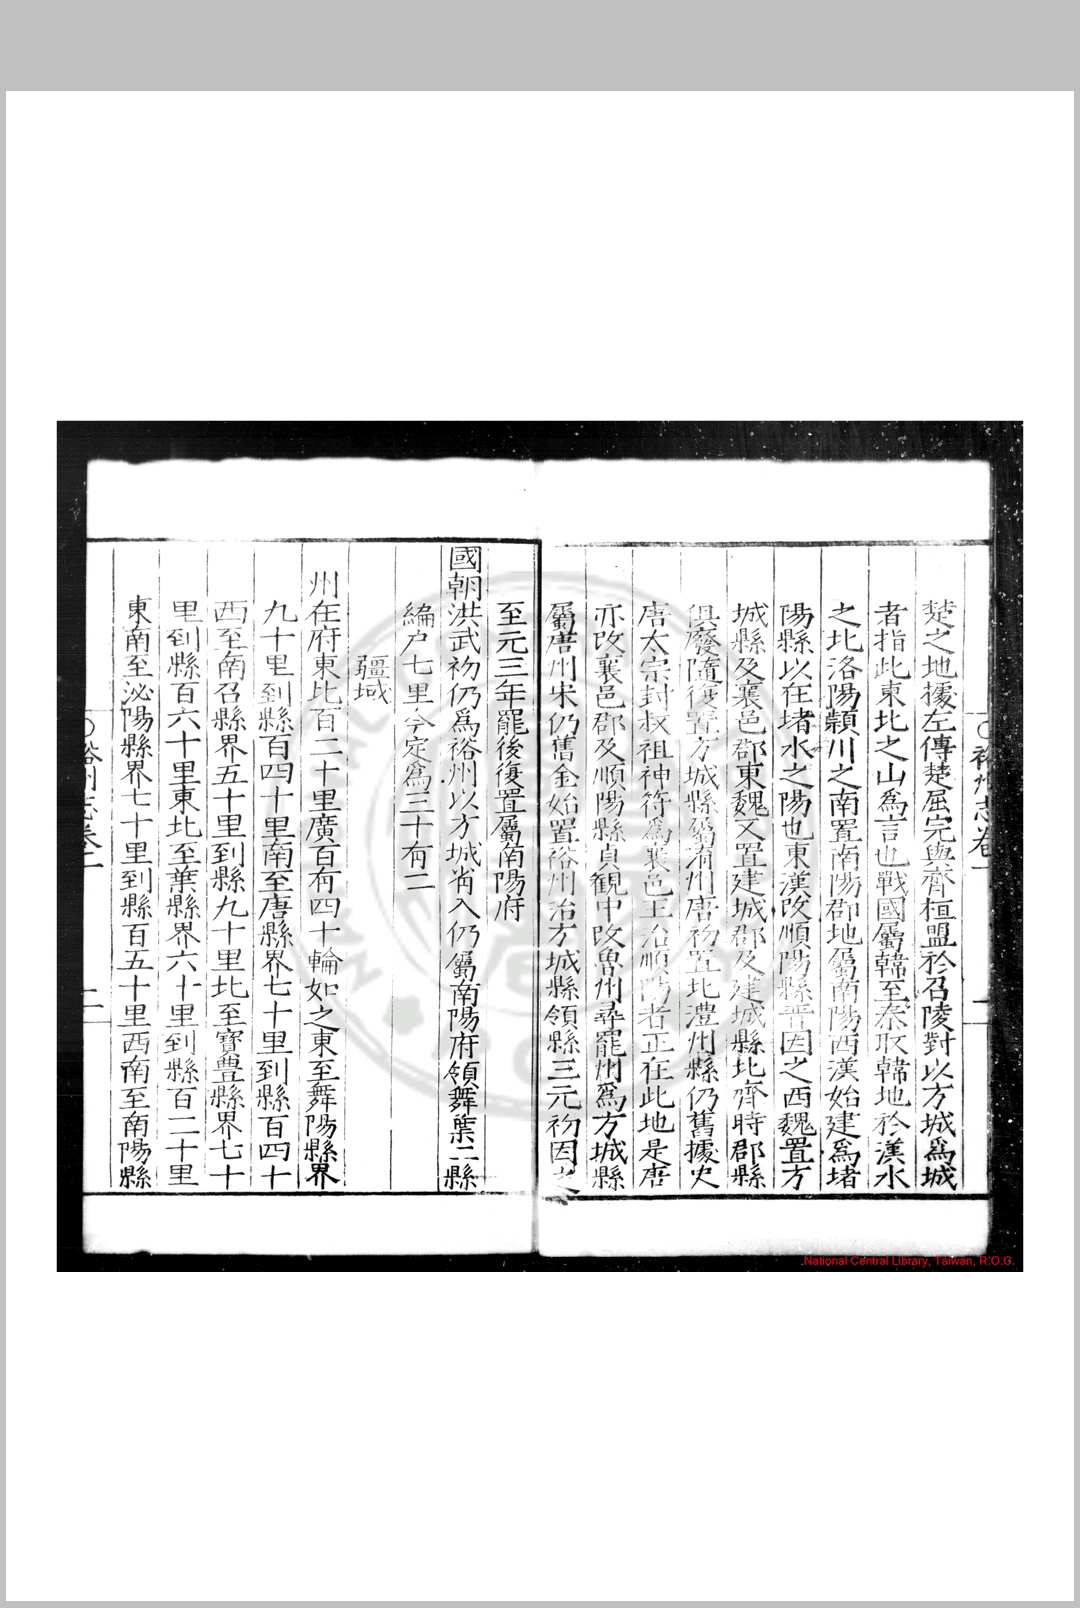 楚之地據左傳楚屈完與齊桓盟於召陵對以方城爲城
者指此東北之山爲言也戰國屬韓至秦取韓地於漢水
之北洛陽潁川之南置南陽郡地屬南陽西漢始建爲堵
陽縣以在堵水之陽也東漢改順陽縣晉因之西魏置方
城縣及襄邑郡東魏又置建城郡及建城縣北齊時郡縣
俱廢隨復置方城縣屬淯州唐初置北澧州縣仍舊據史
唐太宗封叔祖神符爲襄邑王治順陽者正在此地是唐
亦改襄邑郡及順陽縣貞觀中改魯州尋罷州爲方城縣
屬唐州宋仍舊金始置裕州治方城縣領縣三元初因之
至元三年罷後復置屬南陽府
國朝洪武初仍爲裕州以方城省入仍屬南陽府領舞葉二縣
編户七里今定爲三十有二
疆域
州在府東北百二十里廣百有四十輪如之東至舞陽縣界
九十里到縣百四十里南至唐縣界七十里到縣百四十
西至南召縣界五十里到縣九十里北至寶豐縣界七十
里到縣百六十里東北至葉縣界六十里到縣百二十里
東南至泌陽縣界七十里到縣百五十里西南至南陽縣
裕州志卷一
裕州志卷一
二
National Central Library, Taiwan, R.O.C.